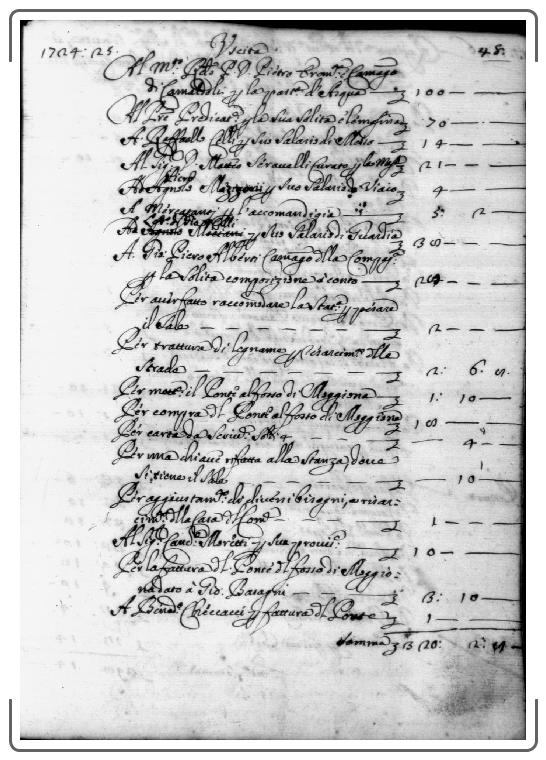 1724: 25. Uscita 48:
Al M.to R.do P. D. Pietro Rom.o Camago
di Camaldoli p la parte d'Acqua £ 100 — —
Al Pre Predicat.e p la sua solita elemosina £ 70 — —
A Raffaello Celli p suo Salario di Messo £ 14 — —
Al Sig.r D. Matteo Seravelli Curato p le Messe £ 21 — —
Ad Agnolo p suo Salario di Viaio £ 4 — —
A Mercatanti p l'accomandigia £ 5: 2
p suo Salario di Guardia £ 38 — —
A Gio: Piero Alberti Camago della Comp.
p la solita composizione à conto £ 28 — —
Per aver fatto raccomodare la Stat.a p pesare
il Sale — £ 2 — —
Per trattura di legname p resarcim.to della
Strada — £ 2: 6. 8.
Per mett.e il Ponte al fosso di Moggiona £ 1: 10 —
Per compra del Ponte al fosso di Moggiona £ 18 — —
Per carta da Scriv.e — £ — 4 —
Per una chiave rifatta alla stanza, dove
si tiene il Sale — 10 —
Per aggiustam.to di diversi bisogni, e risar-
cim.to della Casa del Com.e — £ 1 — —
Al Sig.r Canc.re Moretti p sua provis.e £ 10 — —
Per la fattura del Ponte del fosso di Moggio-
na dato à Gio: Baragni — £ 3: 10
A Bened.o Checcacci p fattura del Ponte £ 1 —
Somma £ 320: 2: 8